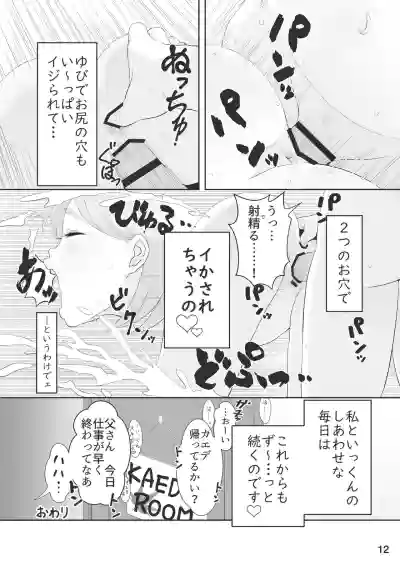 ゆびでお尻の穴も
い〜っぱい
イジられて…
ねっちゅ!
パンッ
パンッ
２つのお穴で
うっ…
射精る……!
びゅる…
イかされ
ちゃうの♡
あぉっ
ビクーンッ
パンッ
パンッ
―というわけでェ
私といっくんの
しあわせな
毎日は
これからも
ず〜…っと
続くのです♡
…おーい
カエデ
帰ってるかい?
トン
トン
父さん 今日
仕事が早く
終わってなあ
ハハ…
KAED
ROOM
おわり
12